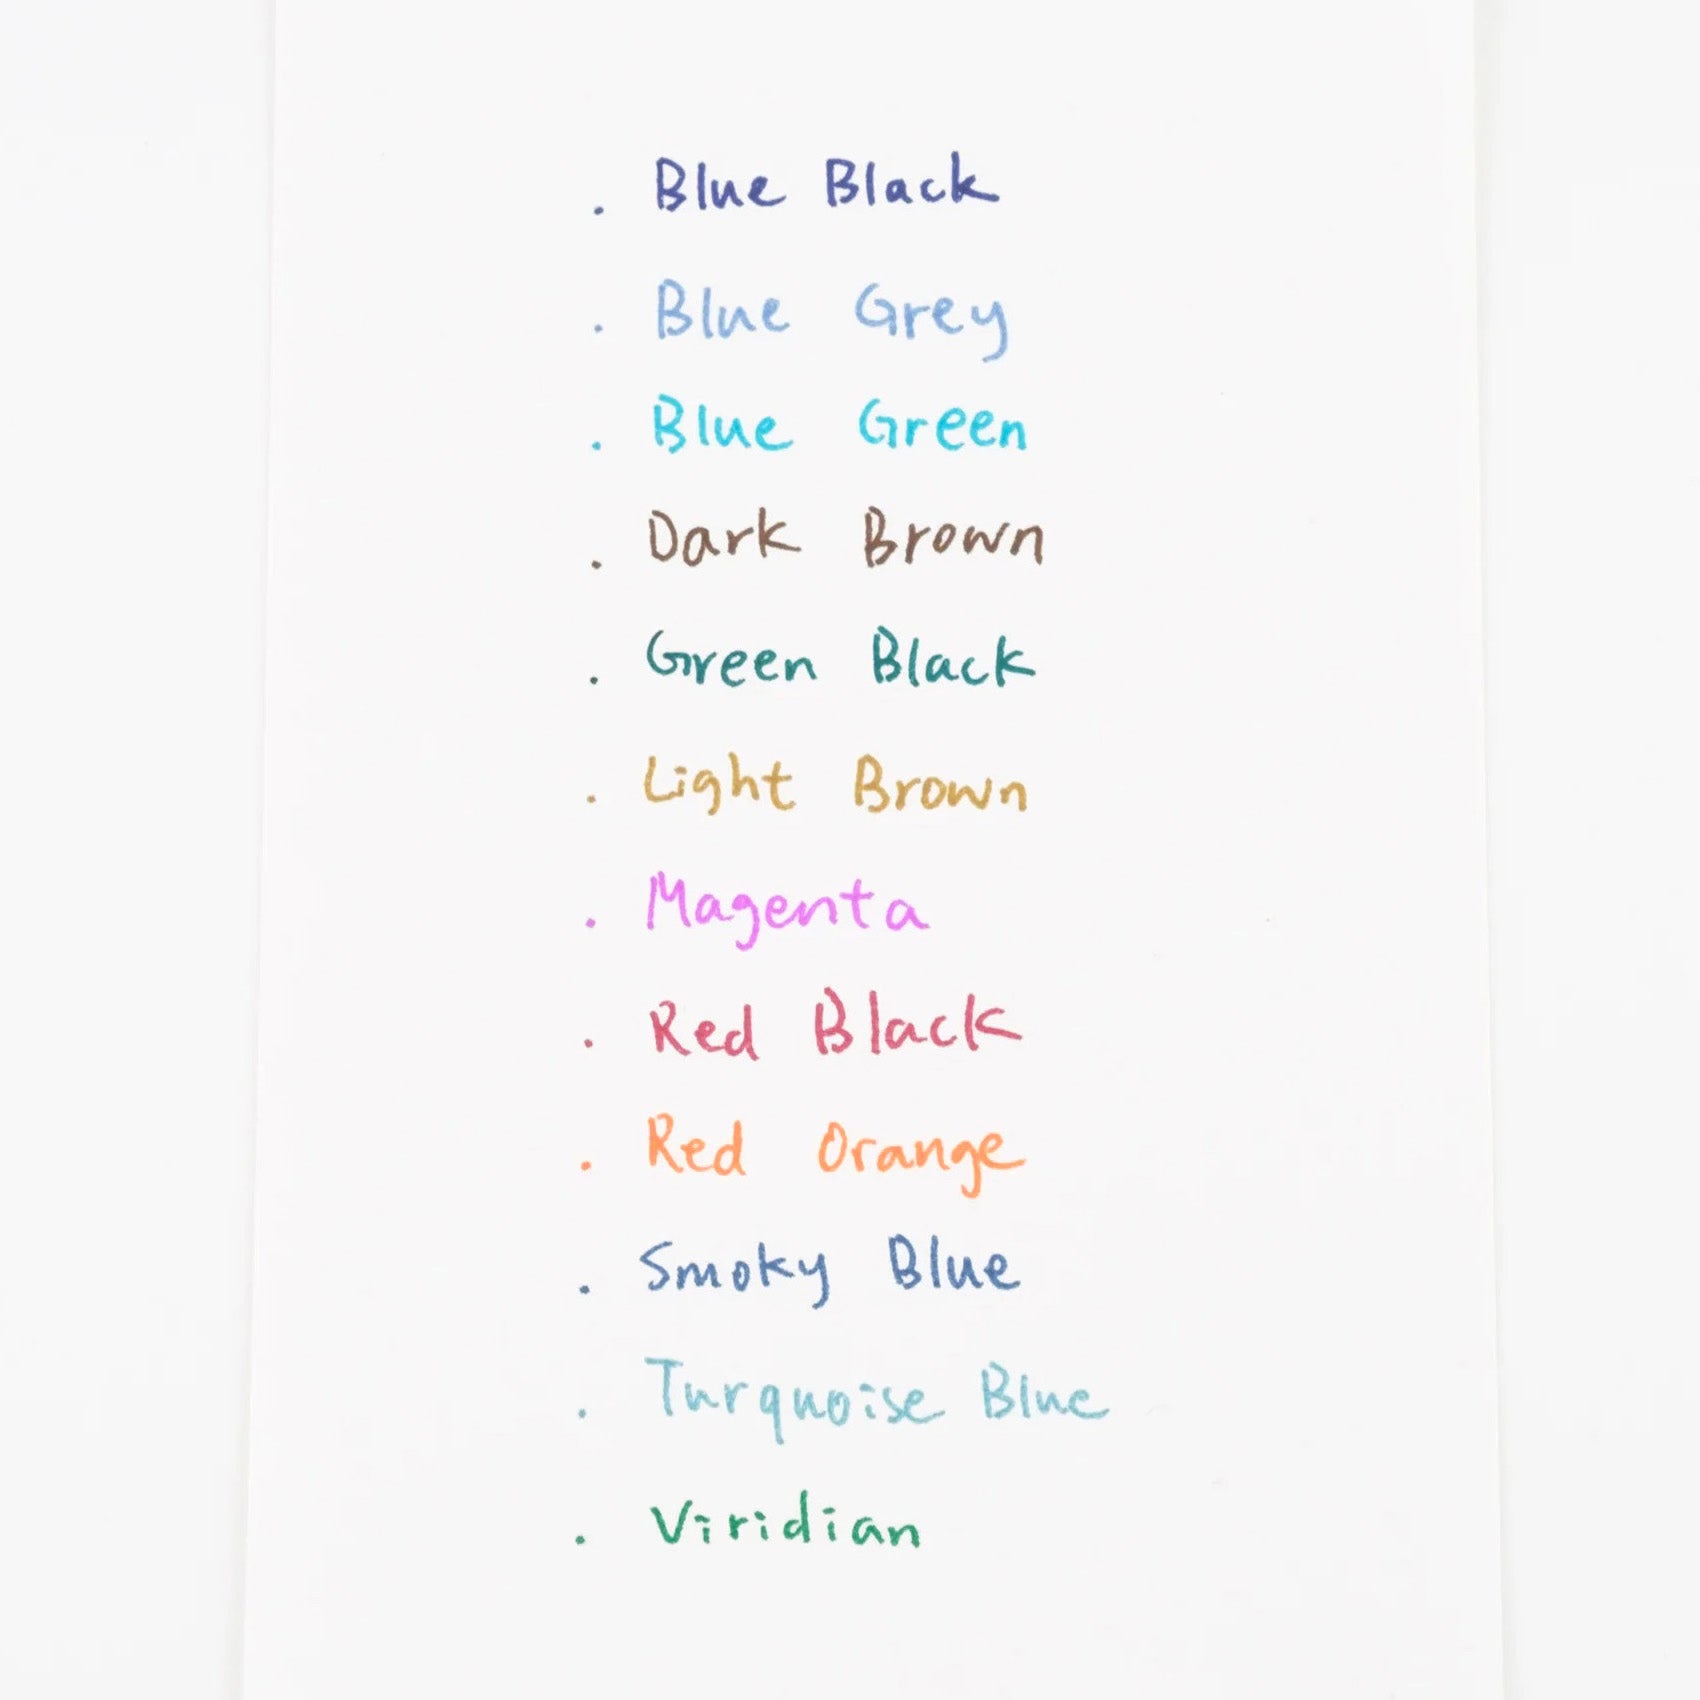 . Blue Black
. Blue Grey
. Blue Green
. Dark Brown
. Green Black
. Light Brown
. Magenta
. Red Black
. Red Orange
. Smoky Blue
. Turquoise Blue
. Viridian